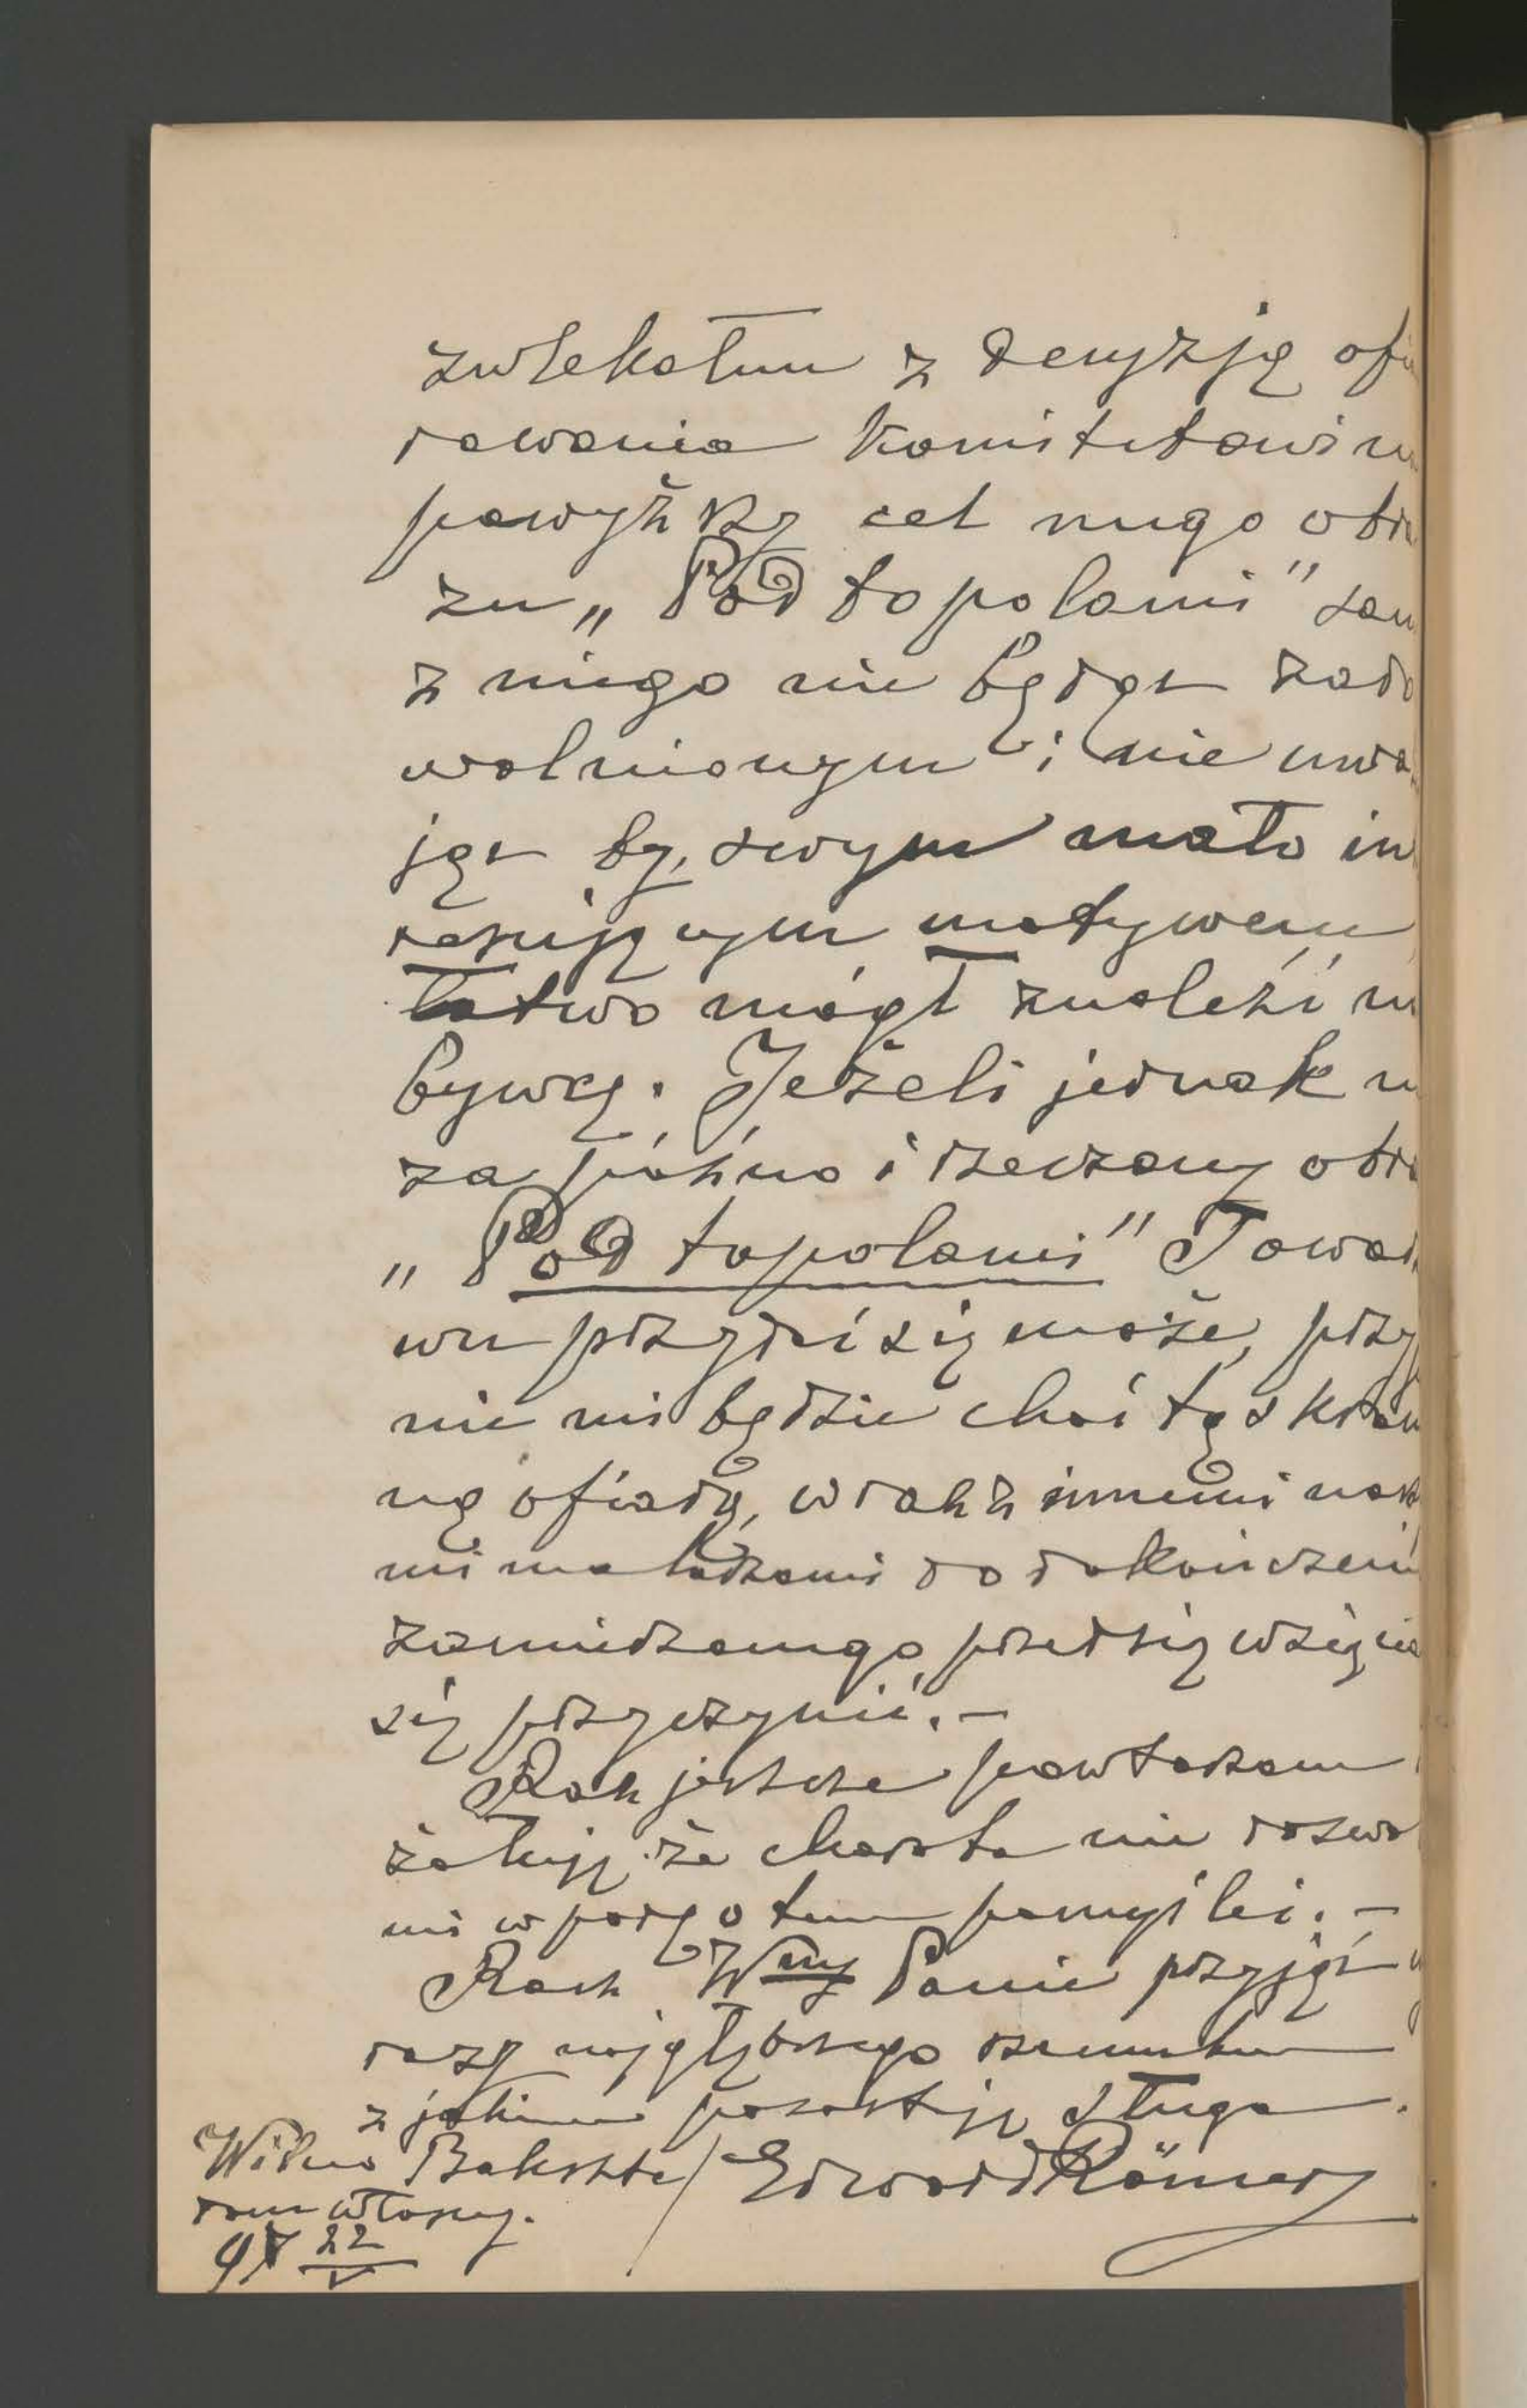 zwlekałem z decyzją ofia
rowania Komitetowi na
powyższy cel mego obra
zu „Pod topolami" sam
z niego nie będąc zado
wolnionym i nie uwa
jąc by, swym mało in
resującym motywem
łatwo mógł znaleźć n
bywcę. Jeżeli jednak n
za późno i rzeczony obra
„Pod topolami" Towar
wu przydać się może, przy
nie mi będzie choć tą skrom
ną ofiarą, wraz z innemi
mi malarzami do dokończeni
zamierzonego przedsięwzięcia
się przyczynić. —
Raz jeszcze powtarzam
żałuję że choroba nie
mi w porę o tem pomyśleć. —
Racz Wny Panie przyjąć
razy najgłębszego szacunku
z jakim pozostaję sługa.
Edward Römer
Wilno Bakszta
dom własny.
97 22/V